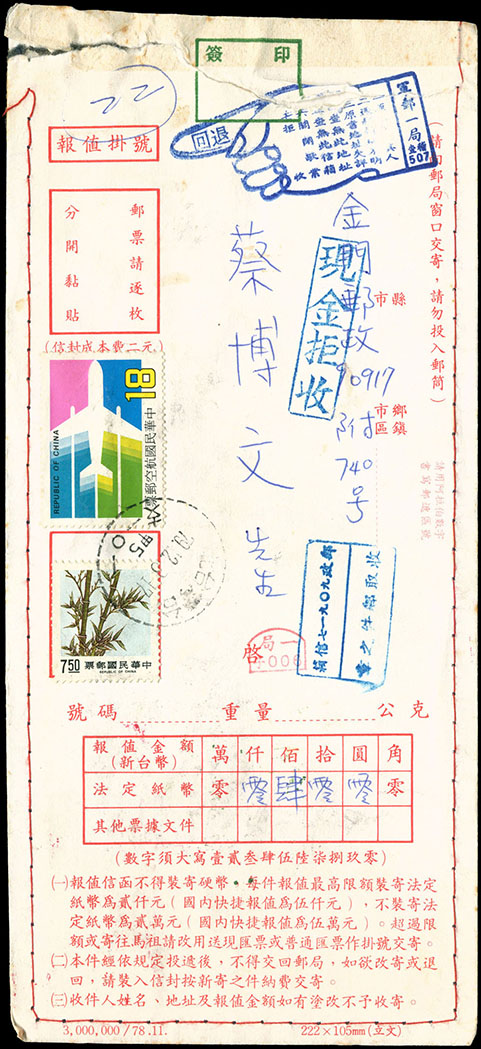 簽 印
22
報值掛號
退回
軍郵一局
507
郵票請逐枚
分開黏貼
(信封成本費二元)
(請向郵局窗口交寄,請勿投入郵筒)
縣市
鄉鎮市區
請用阿拉伯數字
書寫郵遞區號
金門郵政90917附740号
蔡博文先生
啓
現金拒收
18
中華民國航空郵票
REPUBLIC OF CHINA
750
中華民國郵票
REPUBLIC OF CHINA
一局
號碼 重量 公克
報值金額(新台幣) 萬 仟 佰 拾 圓 角
法定紙幣 零 零 肆 零 零 零
其他票據文件
(數字須大寫壹貳叁肆伍陸柒捌玖零)
㈠報值信函不得裝寄硬幣。每件報值最高限額裝寄法定
紙幣爲貳仟元(國內快捷報值爲伍仟元),不裝寄法
定紙幣爲貳萬元(國內快捷報值爲伍萬元)。超過限
額或寄往馬祖請改用送現匯票或普通匯票作掛號交寄。
㈡本件經依規定投遞後,不得交回郵局,如欲改寄或退
回,請裝入信封按新寄之件納費交寄。
㈢收件人姓名、地址及報值金額如有塗改不予收寄。
3,000,000/78.11.
222×105mm(立文)